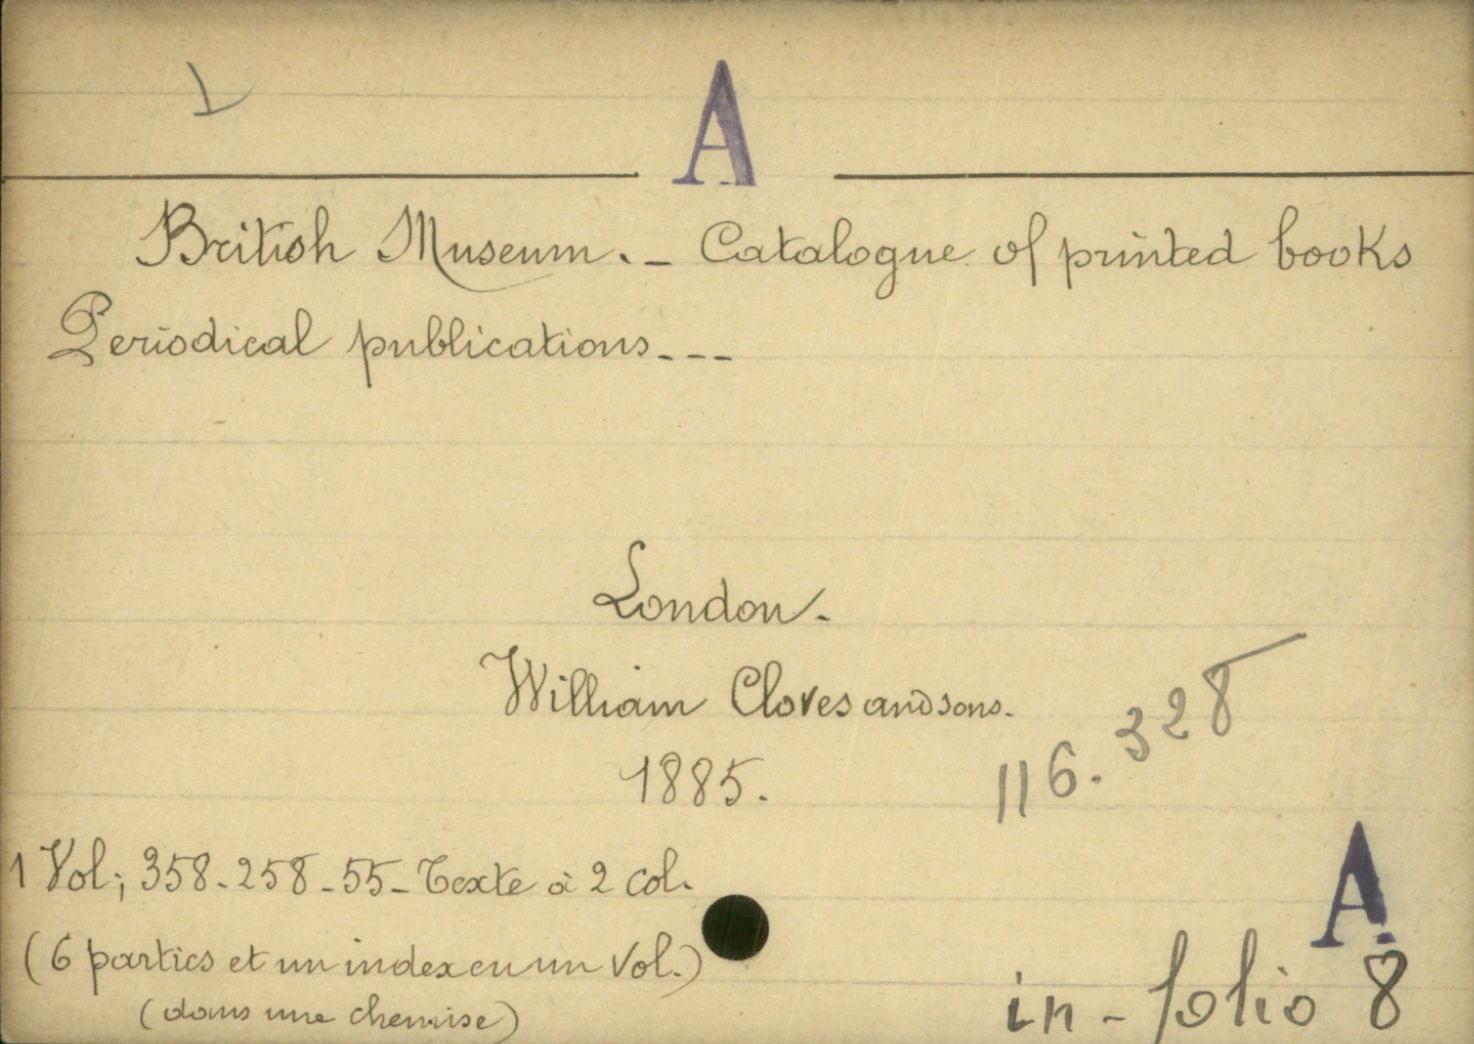 A
British Museum. _ Catalogue of printed books
Periodical publications _ _ _
London.
William Cloves and sons.
116.328
1885.
1 Vol; 358 - 258 - 55 - Texte à 2 col.
A
(6 parties et un index en un Vol.)
(dans une chemise)
in-folio 8